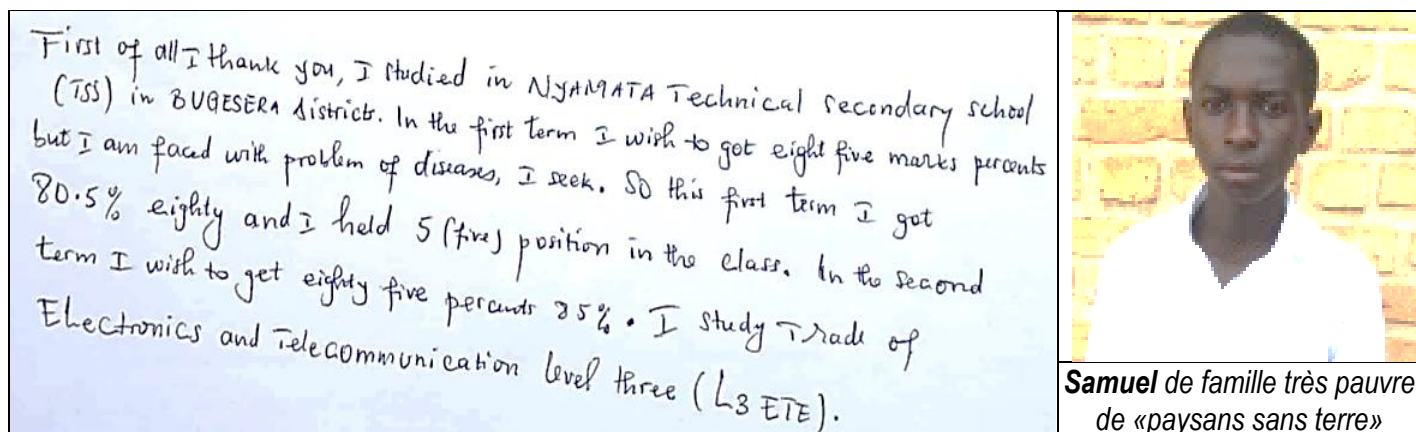 First of all I thank you, I studied in NYAMATA Technical secondary school
(TSS) in BUGESERA district. In the first term I wish to got eight five marks percents
but I am faced with problem of diseases, I seek. So this first term I got
80.5% eighty and I held 5 (five) position in the class. In the second
term I wish to get eighty five percents 85%. I study Trade of
Electronics and Telecommunication level three (L3 ETE).
Samuel de famille très pauvre
de «paysans sans terre»